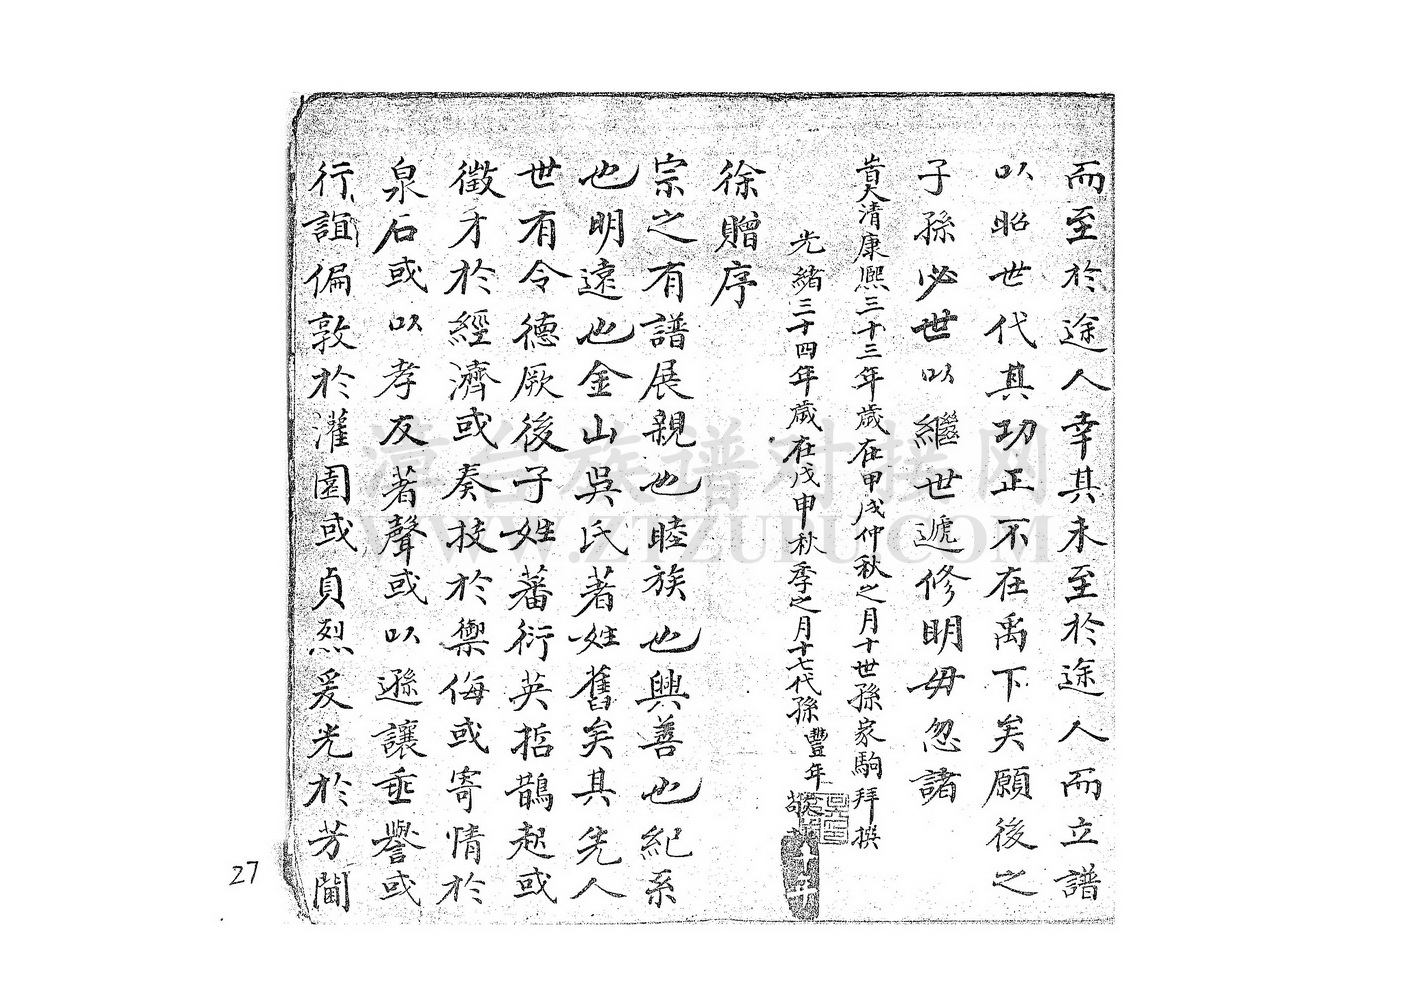 而至於途人幸其未至於途人而立譜
以昭世代其功正不在禹下矣願後之
子孫必世以繼世遞修明毋忽諸
旹大清康熙三十三年歲在甲戌仲秋之月十世孫家駒拜撰
光緒三十四年歲在戊申秋季之月十七代孫豐年敬
徐贈序
宗之有譜展親也睦族也興善也紀系
也明遠也金山吳氏著姓舊矣其先人
世有令德厥後子姓蕃衍英哲鵲起或
徵才於經濟或奏技於禦侮或寄情於
泉石或以孝友著聲或以遜讓垂譽或
行誼偏敦於灌園或貞烈爰光於芳閫
27
潭台族谱对接网
WWW.ZTZUPU.COM